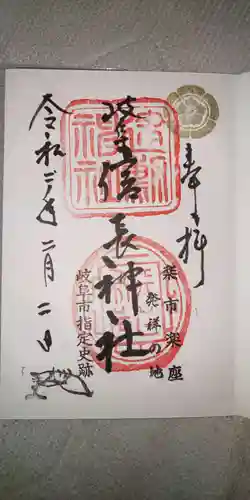 奉拝
楽市楽座
発祥の地
岐阜信長神社
岐阜市指定史跡
令和二年二月二日